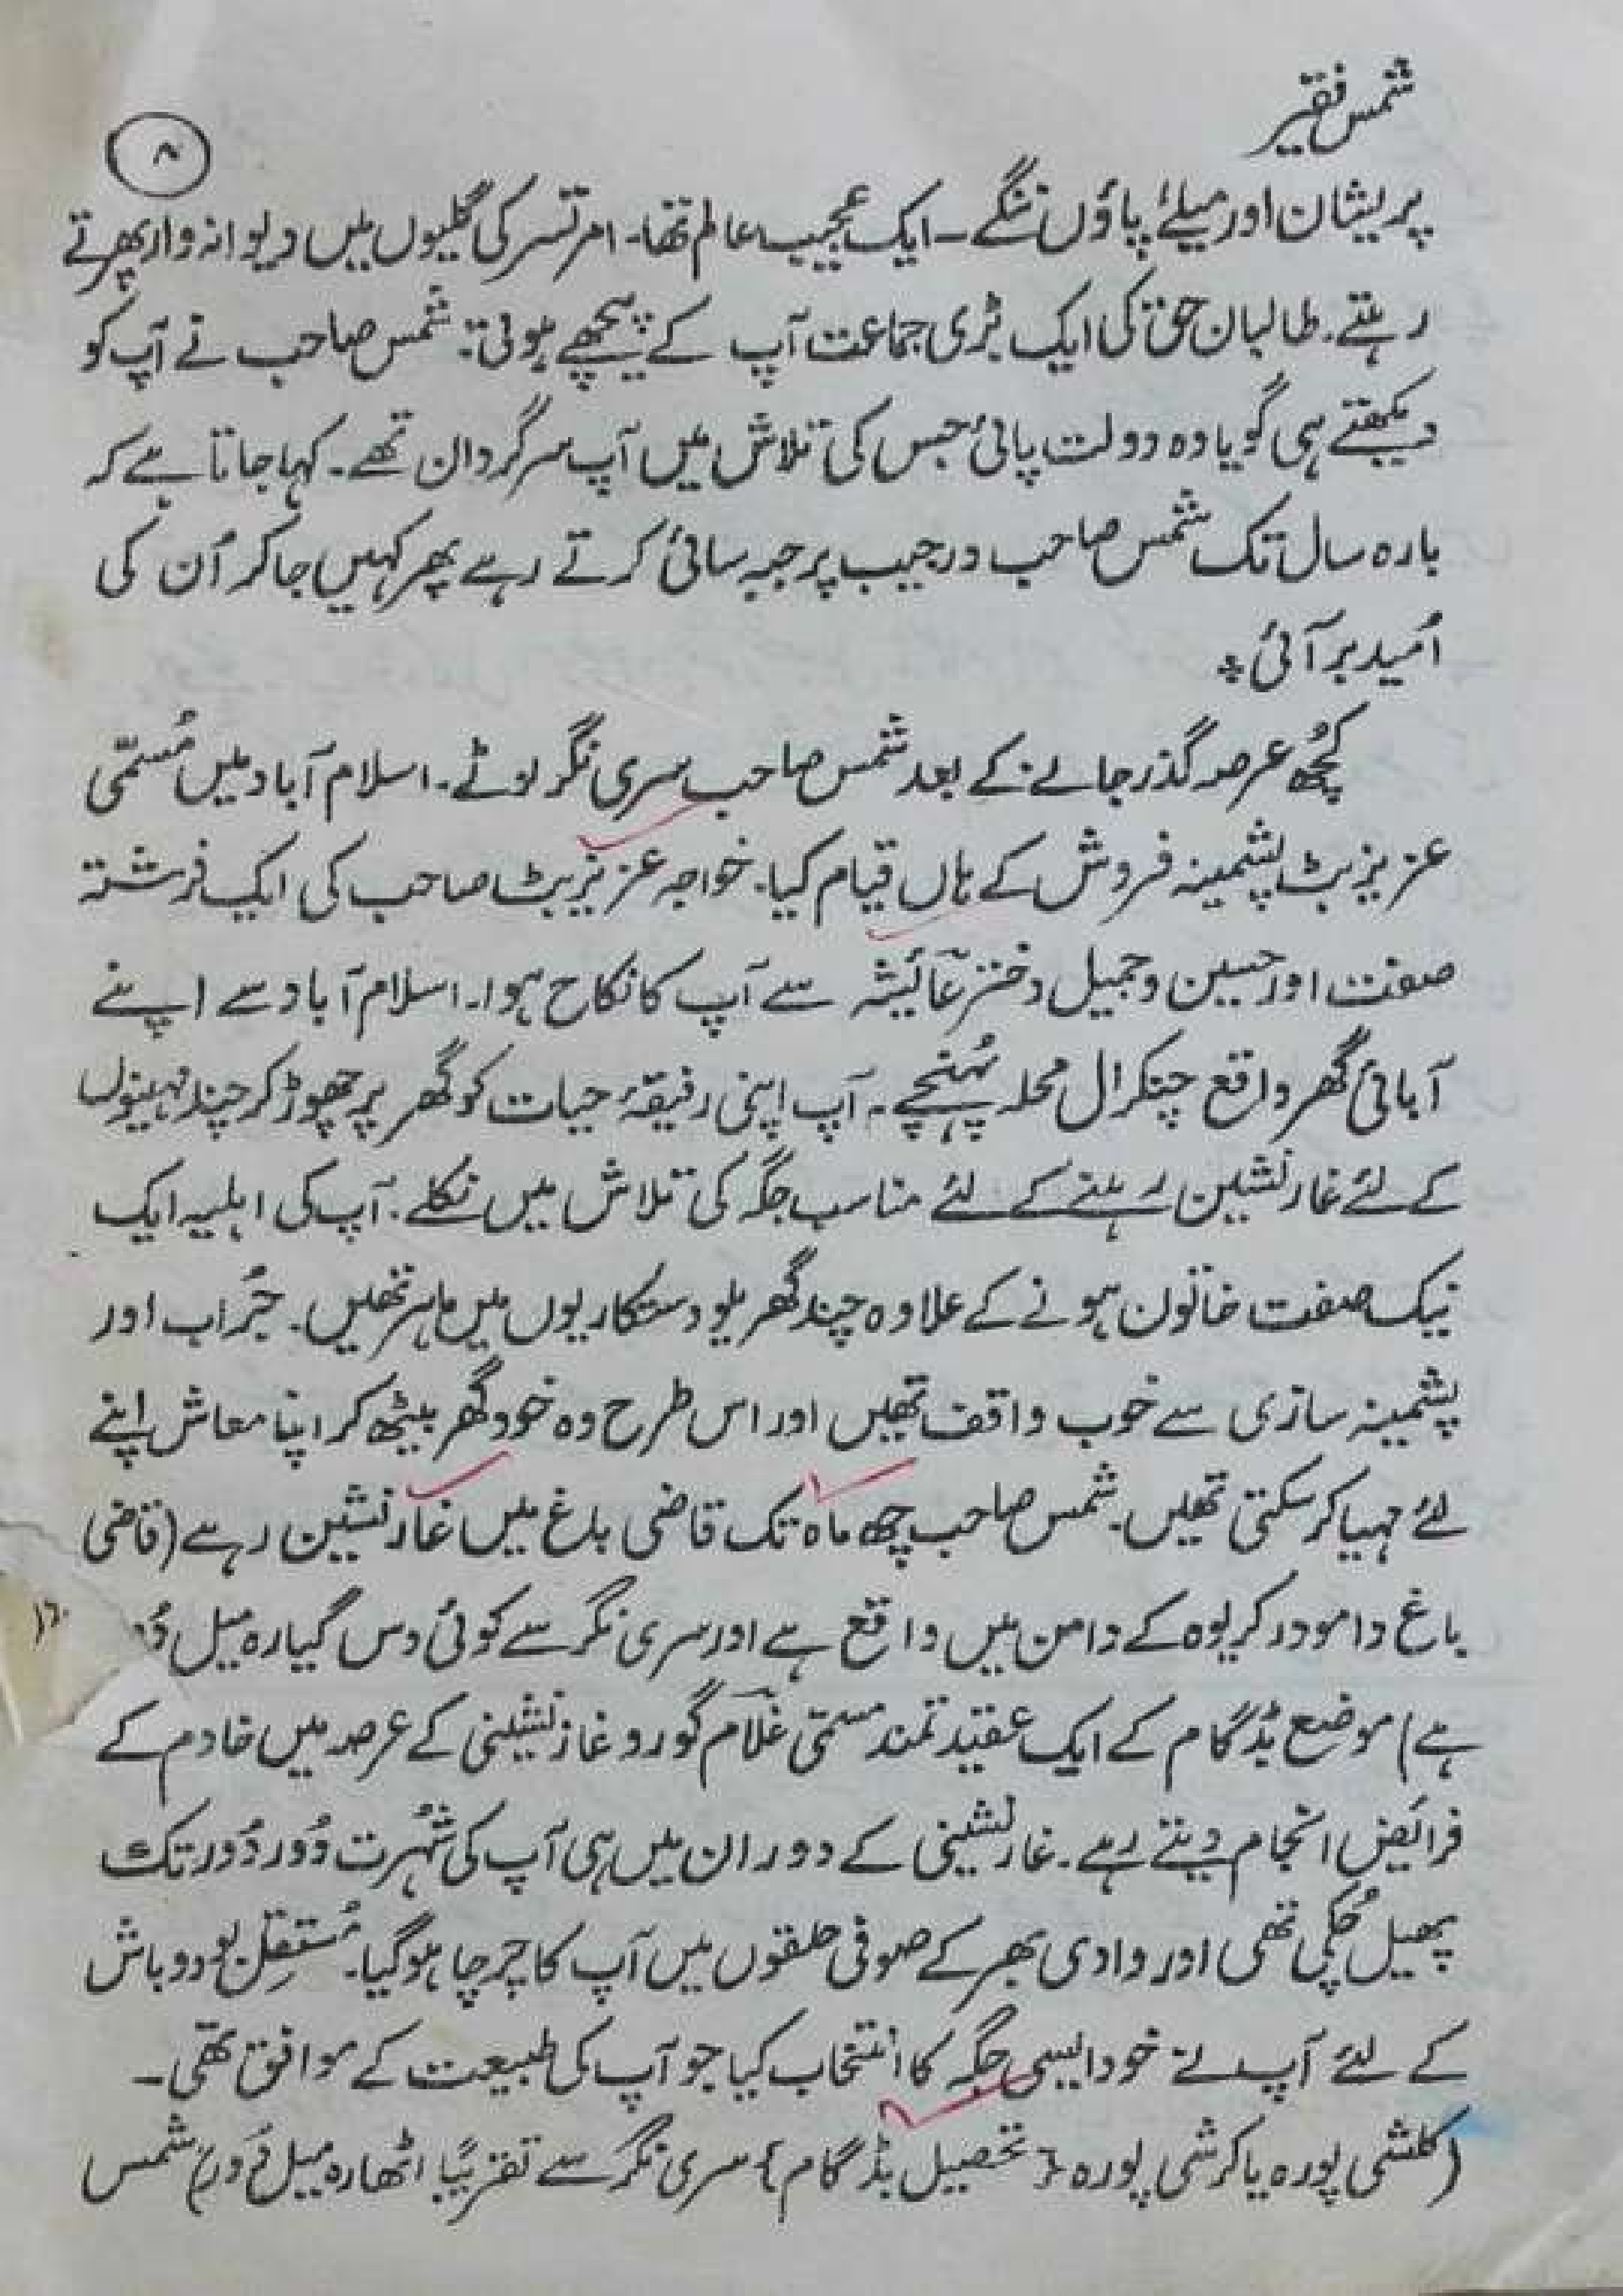 شمس فقیر
۸
پریشان اور میلے پاؤں ننگے ـ ایک عجیب عالم تھا۔ امرتسر کی گلیوں میں دیوانہ وار پھرتے
رہتے۔ طالبان حق کی ایک بڑی جماعت آپ کے پیچھے ہوتی۔ شمس صاحب نے آپ کو
دیکھتے ہی گویا وہ دولت پائی جس کی تلاش میں آپ سرگردان تھے۔ کہا جاتا ہے کہ
بارہ سال تک شمس صاحب در حبیب پر جبہ سائی کرتے رہے پھر کہیں جا کر اُن کی
اُمید بر آئی ۔
کچُھ عرصہ گذر جانے کے بعد شمس صاحب سری نگر لوٹے۔ اسلام آباد میں مُسمّی
عزیز بٹ پشمینہ فروش کے ہاں قیام کیا۔ خواجہ عزیز بٹ صاحب کی ایک فرشتہ
صفت اور حسین و جمیل دختر عائیشہ سے آپ کا نکاح ہوا۔ اسلام آباد سے اپنے
آبائی گھر واقع چنکرال محلہ پہُنچے ۔ آپ اپنی رفیقۂ حیات کو گھر پر چھوڑ کر چند مہینوں
کے لئے غار نشین رہنے کے لئے مناسب جگہ کی تلاش میں نکلے۔ آپ کی اہلیہ ایک
نیک صفت خاتون ہونے کے علاوہ چند گھریلو دستکاریوں میں ماہر تھیں۔ جُراب اور
پشمینہ سازی سے خوب واقف تھیں اور اس طرح وہ خود گھر بیٹھ کر اپنا معاش اپنے
لئے مہیا کر سکتی تھیں۔ شمس صاحب چھ ماہ تک قاضی باغ میں غار نشین رہے (قاضی
باغ دامودر کریوہ کے دامن میں واقع ہے اور سری نگر سے کوئی دس گیارہ میل
ہے) موضع بڈگام کے ایک عقیدتمند مسمّی غلام گورو غار نشینی کے عرصہ میں خادم کے
فرائض انجام دیتے رہے۔ غار نشینی کے دوران میں ہی آپ کی شُہرت دُور دُور تک
پھیل چُکی تھی اور وادی بھر کے صوفی حلقوں میں آپ کا چرچا ہو گیا۔ مُستقِل بود و باش
کے لئے آپ نے خود ایسی جگہ کا انتخاب کیا جو آپ کی طبیعت کے موافق تھی۔
(کلشی پورہ یا کرشی پورہ { تحصیل بڈگام } سری نگر سے تقریبًا اٹھارہ میل دُور) شمس